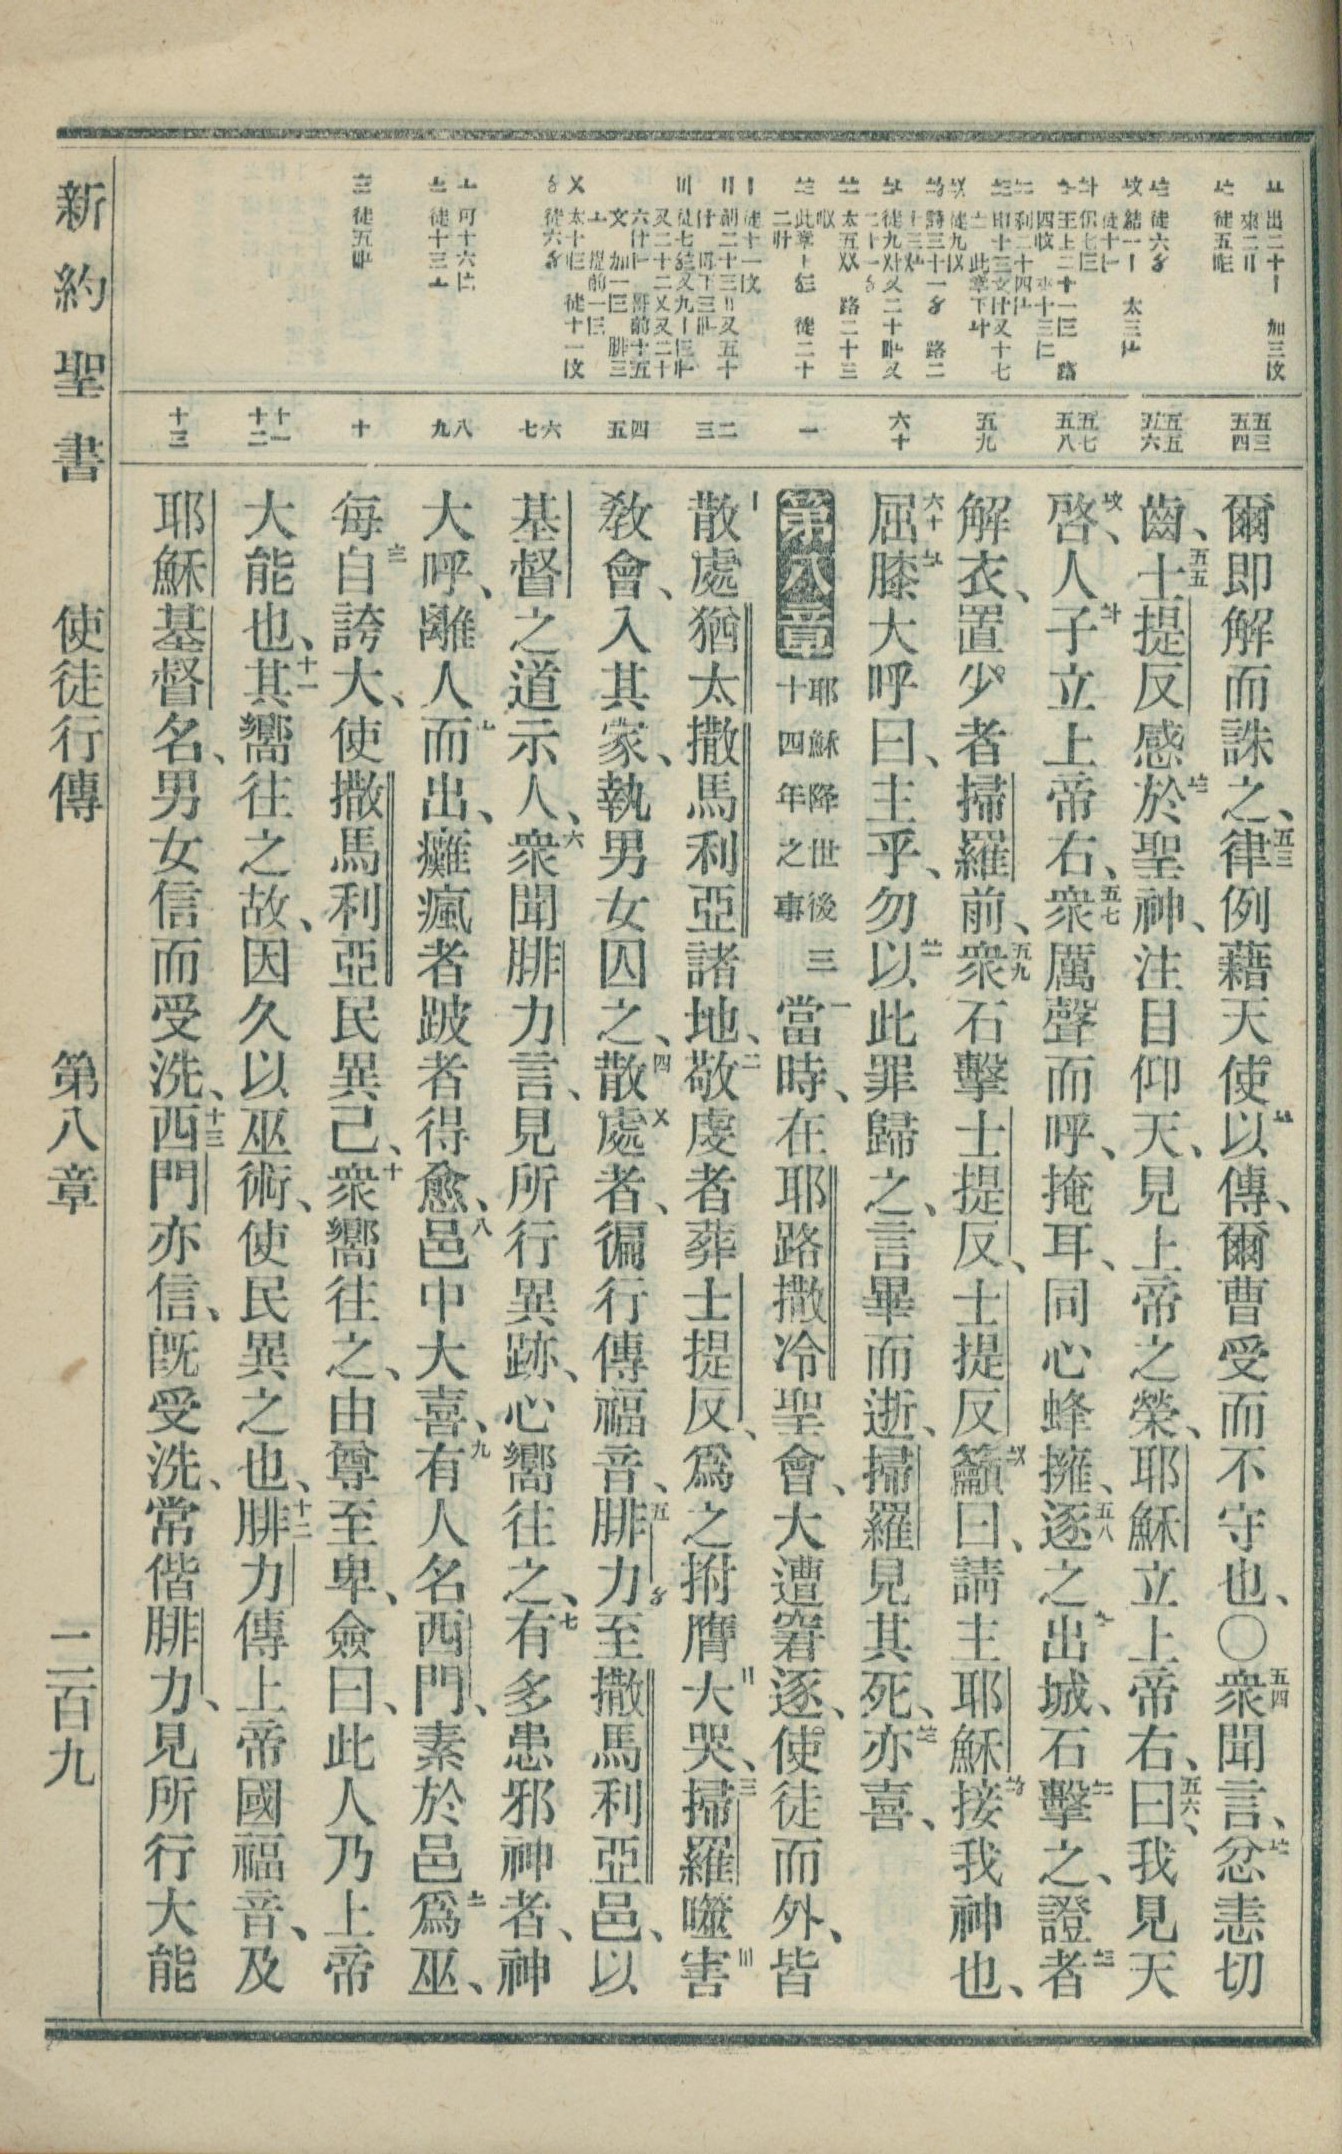 爾即解而誅之、五三律例藉天使以傳、爾曹受而不守也、〇五四衆聞言、忿恚切
齒、五五士提反感於聖神、注目仰天、見上帝之榮、耶穌立上帝右、五六曰、我見天
啓、人子立上帝右、五七衆厲聲而呼、掩耳、同心蜂擁、五八逐之出城、石擊之、證者
解衣、置少者掃羅前、五九衆石擊士提反、士提反籲曰、請主耶穌接我神也、
六十屈膝大呼曰、主乎、勿以此罪歸之、言畢而逝、掃羅見其死、亦喜、
第八章 耶穌降世後三十四年之事 一當時、在耶路撒冷聖會、大遭窘逐、使徒而外、皆
散處猶太撒馬利亞諸地、二敬虔者葬士提反、爲之拊膺大哭、三掃羅噬害
敎會、入其家、執男女囚之、四散處者、徧行傳福音、五腓力至撒馬利亞邑、以
基督之道示人、六衆聞腓力言、見所行異跡、心嚮往之、七有多患邪神者、神
大呼、離人而出、癱瘋者跛者得愈、八邑中大喜、九有人名西門、素於邑爲巫、
每自誇大、使撒馬利亞民異己、十衆嚮往之、由尊至卑、僉曰、此人乃上帝
大能也、十一其嚮往之故、因久以巫術、使民異之也、十二腓力傳上帝國福音、及
耶穌基督名、男女信而受洗、十三西門亦信、旣受洗、常偕腓力、見所行大能
五三 五四
五五 五六
五七 五八
五九
六十
一
二 三
四 五
六 七
八 九
十
十一 十二
十三
新約聖書 使徒行傳 第八章 二百九